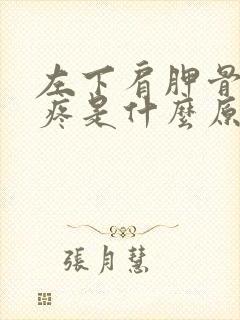 左下肩胛骨
疼是什麼原
張月慧